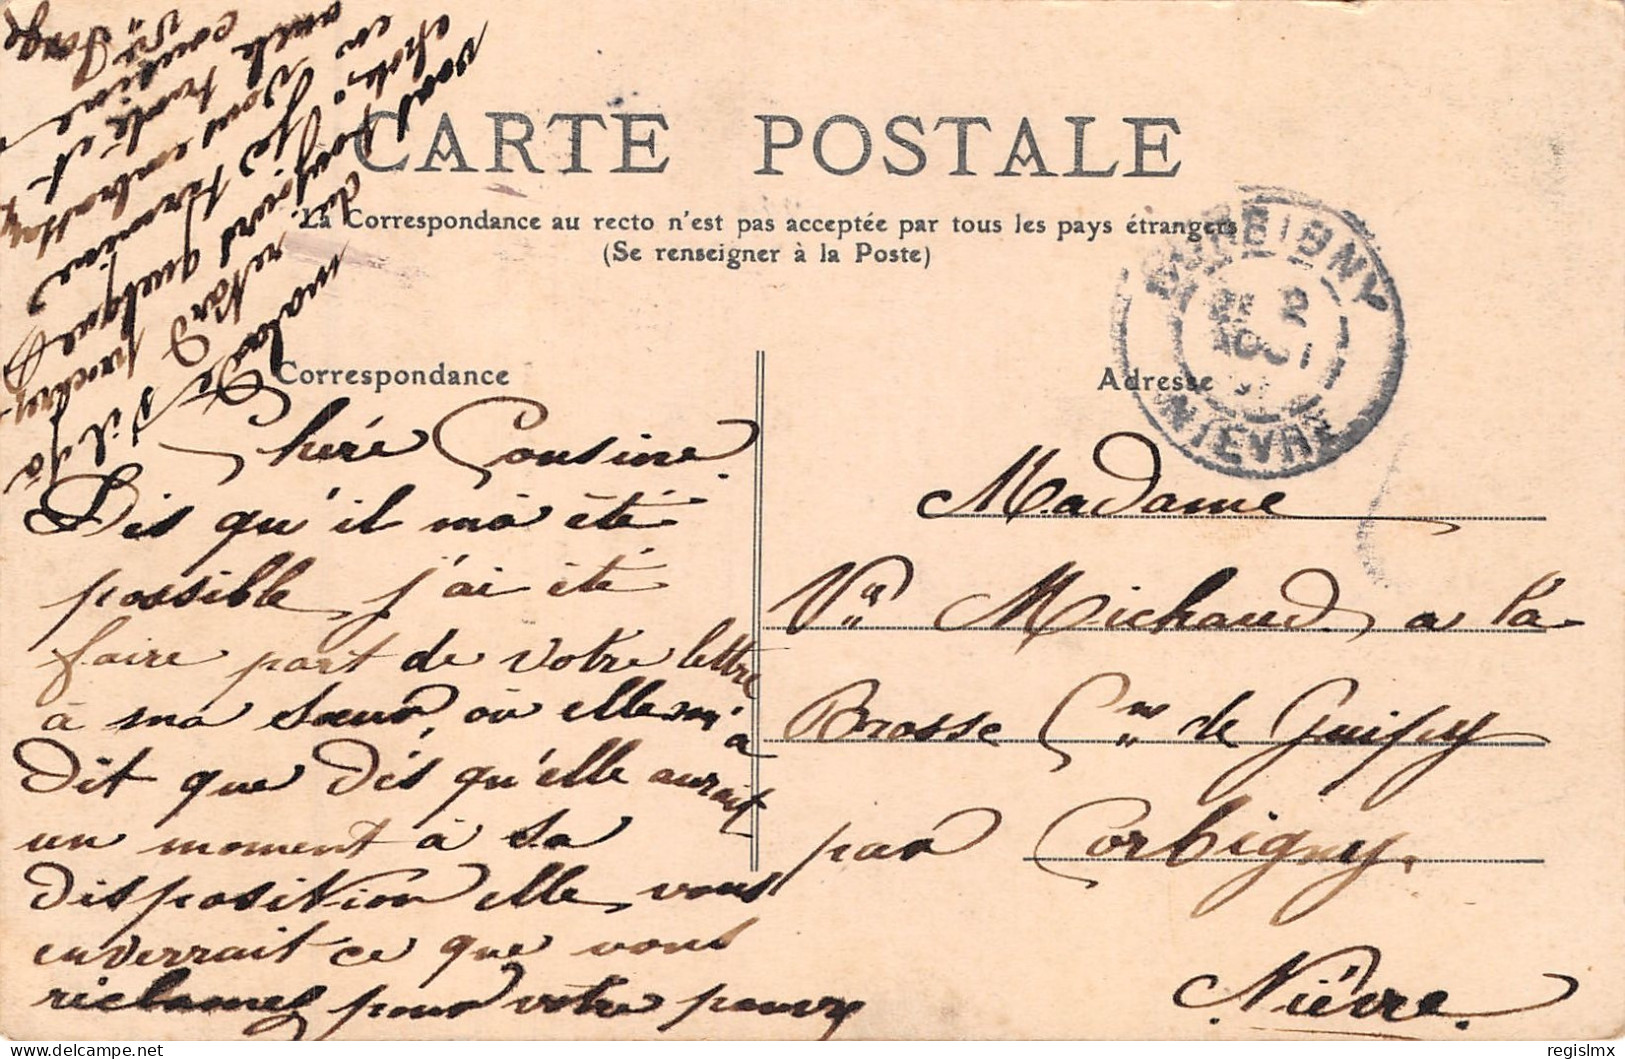 CARTE POSTALE
La Correspondance au recto n'est pas acceptée par tous les pays étrangers
(Se renseigner à la Poste)
Correspondance
Adresse
CORBIGNY
2
AOUT
NIEVRE
Chère Cousine.
Dis qu'il m'a été
possible, j'ai été
faire part de votre lettre
à ma sœur, où elle m'a
dit que dis qu'elle aurait
un moment à sa
disposition elle vous
enverrait ce que vous
réclamez pour votre pauvre
malade s'il y a
du retard
toujours quelque
chose
vous embrasse
Madame
Vve Michaud, a la
Brosse Cne de Guipy
par Corbigny.
Nièvre.
regislmx
www.delcampe.net